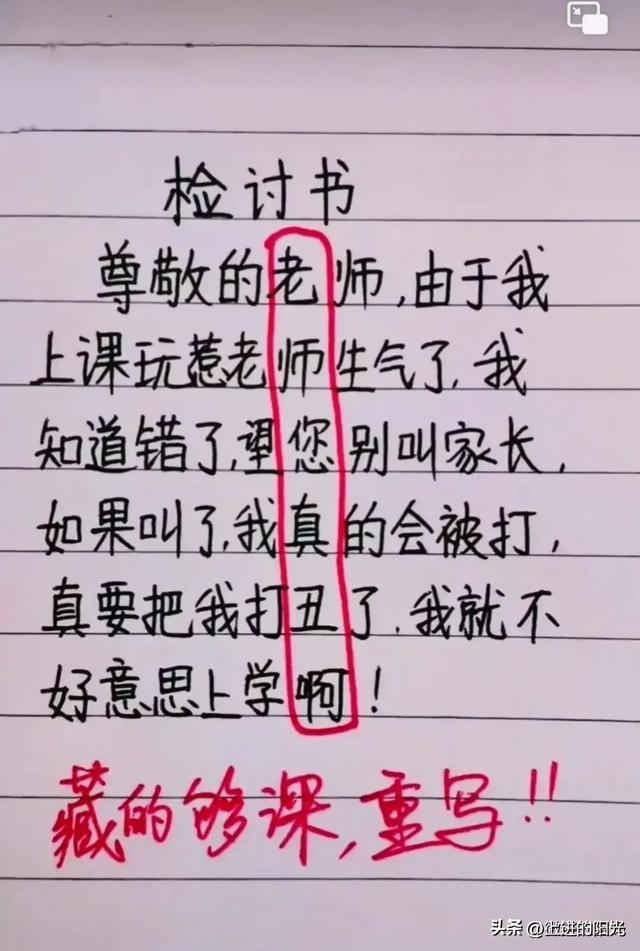 检讨书
尊敬的老师,由于我
上课玩惹老师生气了,我
知道错了,望您别叫家长,
如果叫了,我真的会被打,
真要把我打丑了,我就不
好意思上学啊!
藏的够深,重写!!
头条 @进的阳光